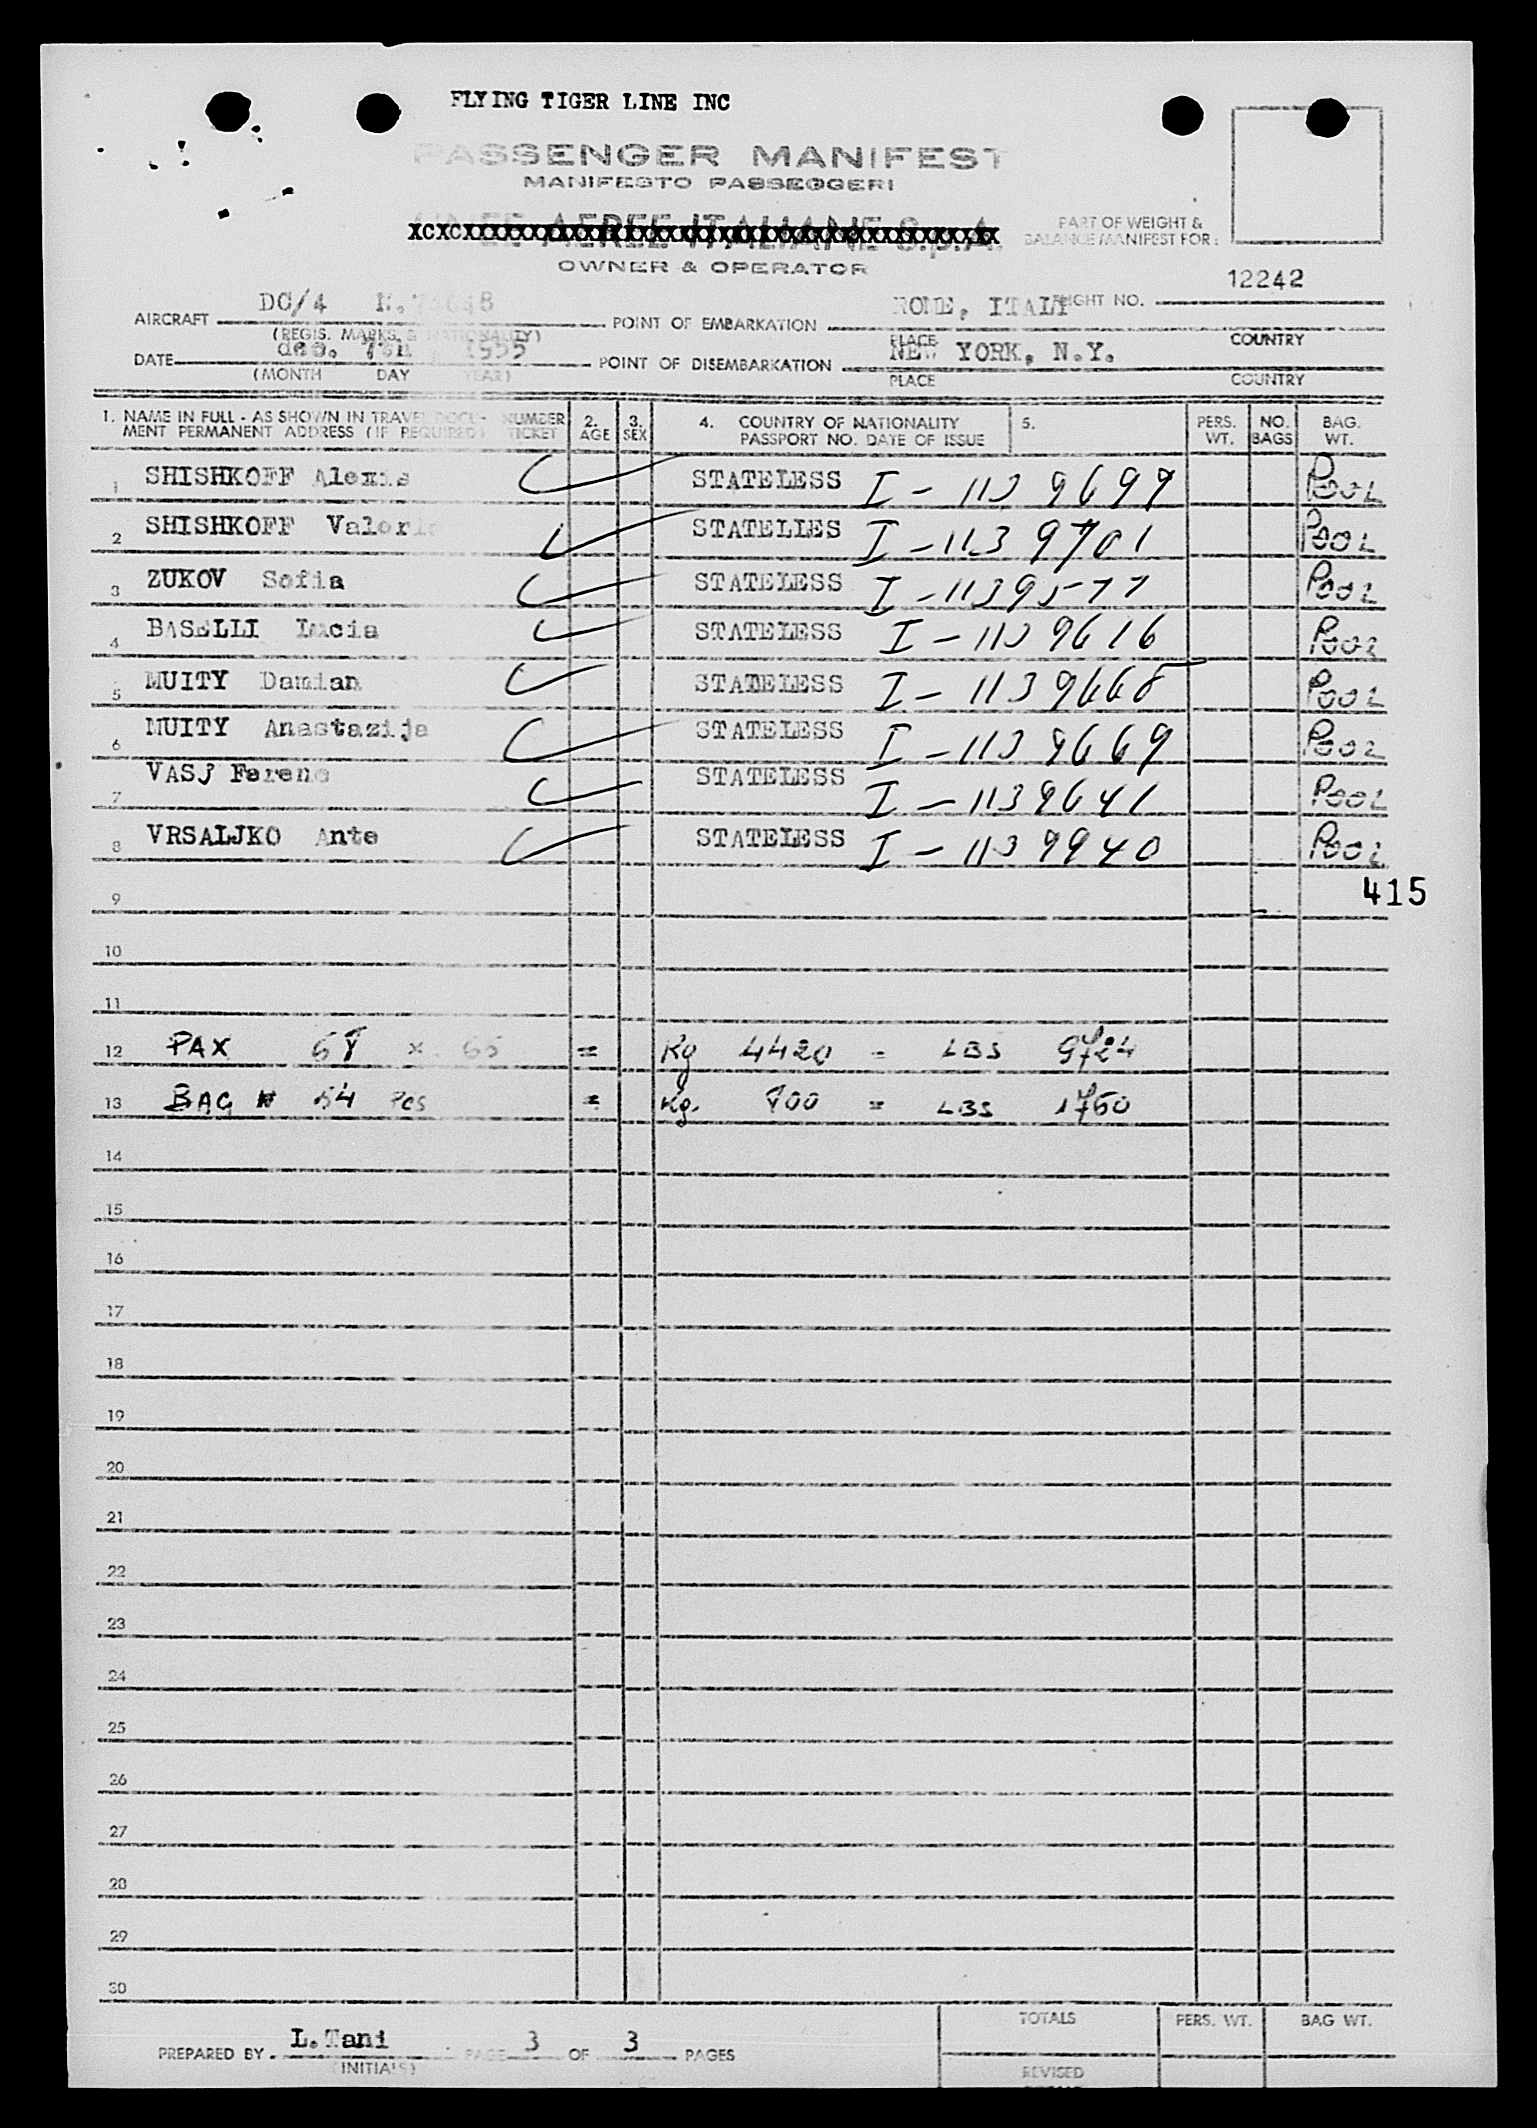 FLYING TIGER LINE INC
PASSENGER MANIFEST
MANIFESTO PASSEGGERI
LINEE AEREE ITALIANE S.p.A.
PART OF WEIGHT &
BALANCE MANIFEST FOR:
OWNER & OPERATOR
12242
AIRCRAFT DC/4 POINT OF EMBARKATION ROME, ITALY FLIGHT NO.
(REGIS. MARKS & NATIONALITY) PLACE COUNTRY
DATE dec. 1955 POINT OF DISEMBARKATION NEW YORK, N.Y.
(MONTH DAY YEAR) PLACE COUNTRY
1. NAME IN FULL - AS SHOWN IN TRAVEL DOCU- NUMBER 2. 3. 4. COUNTRY OF NATIONALITY 5. PERS. NO. BAG.
MENT PERMANENT ADDRESS (IF REQUIRED) TICKET AGE SEX PASSPORT NO. DATE OF ISSUE WT. BAGS WT.
1 SHISHKOFF Alexis STATELESS I - 1139699 POOL
2 SHISHKOFF STATELLES I - 1139701 POOL
3 ZUKOV Sofia STATELESS I - 1139577 POOL
4 BASELLI Lucia STATELESS I - 1139616 POOL
5 MUITY Damian STATELESS I - 1139668 POOL
6 MUITY Anastazija STATELESS I - 1139669 POOL
7 VASJ Ferenc STATELESS I - 1139641 POOL
8 VRSALJKO Ante STATELESS I - 1139940 POOL
415
9
10
11
12 PAX 68 x 65 = Kg 4420 = LBS 9724
13 BAG 54 Pcs = Kg. 800 = LBS 1760
14
15
16
17
18
19
20
21
22
23
24
25
26
27
28
29
30
TOTALS PERS. WT. BAG WT.
PREPARED BY L. Tani PAGE 3 OF 3 PAGES
(INITIALS) REVISED